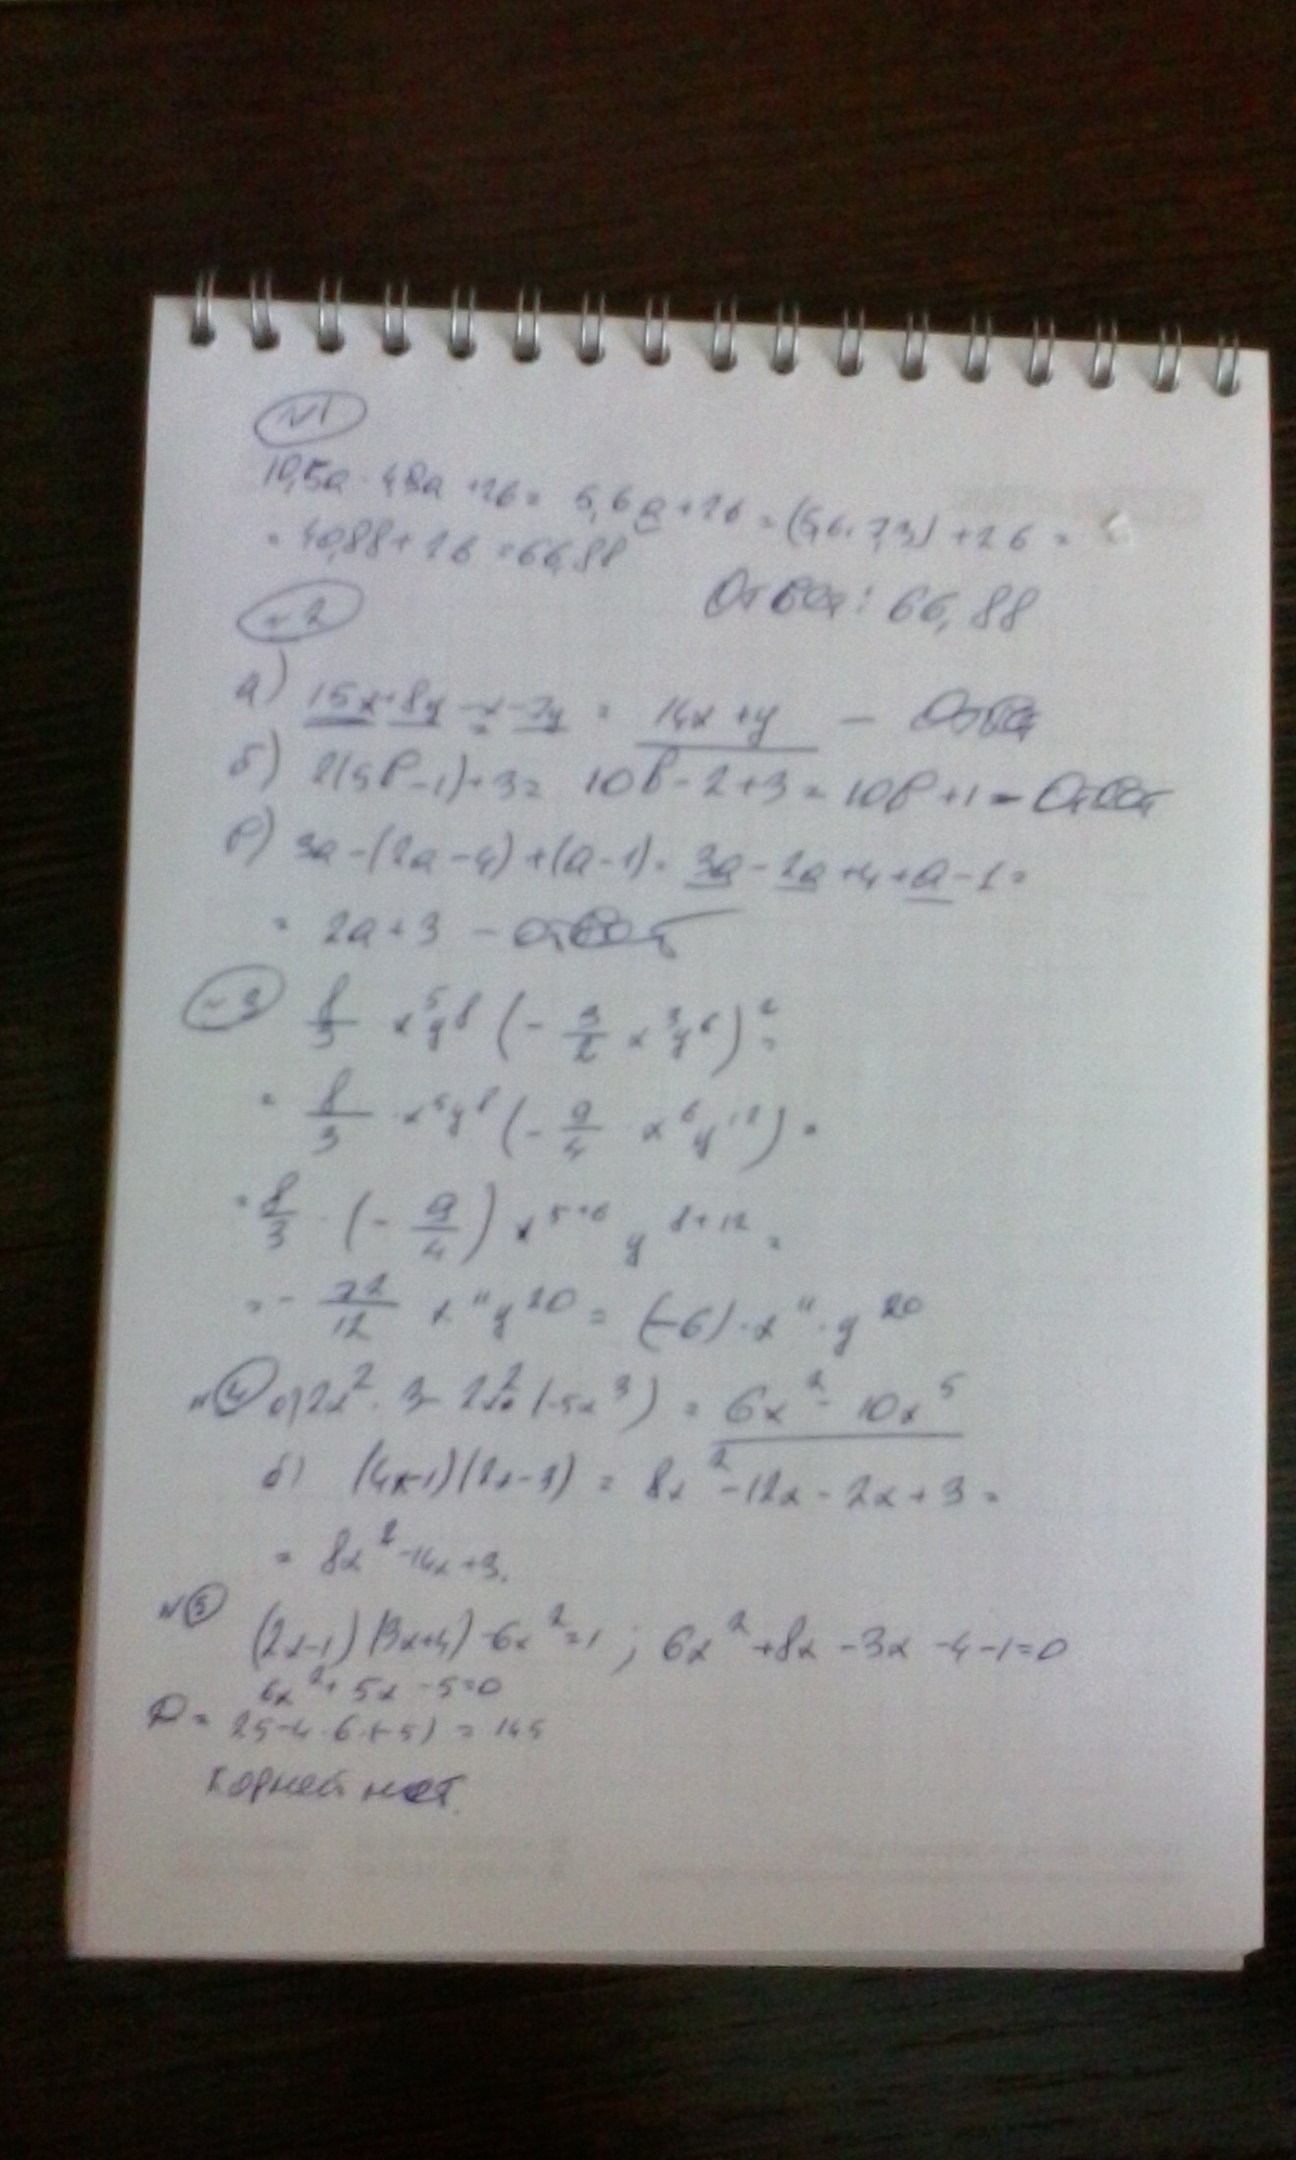 №1
10,5a - 4,9a + 26 = 5,6a + 26 = (5,6 · 7,3) + 26 =
= 40,88 + 26 = 66,88
Ответ: 66,88
№2
а) 15x + 8y - x - 7y = 14x + y — Ответ
б) 2(5b - 1) + 3 = 10b - 2 + 3 = 10b + 1 — Ответ
в) 3a - (2a - 4) + (a - 1) = 3a - 2a + 4 + a - 1 =
= 2a + 3 — ответ
№3 8/3 x⁵y⁸ (- 3/2 x³y⁶)² =
= 8/3 x⁵y⁸ (- 9/4 x⁶y¹²) =
= 8/3 · (- 9/4) x⁵⁺⁶ y⁸⁺¹² =
= - 72/12 x¹¹y²⁰ = (-6) · x¹¹ · y²⁰
№4 а) 2x² · 3 - 2x² (-5x³) = 6x² - 10x⁵
б) (4x-1)(2x-3) = 8x² - 12x - 2x + 3 =
= 8x² - 14x + 3.
№5 (2x-1)(3x+4) - 6x² = 1 ; 6x² + 8x - 3x - 4 - 1 = 0
6x² + 5x - 5 = 0
D = 25 - 4 · 6 · (-5) = 145
Корней нет.